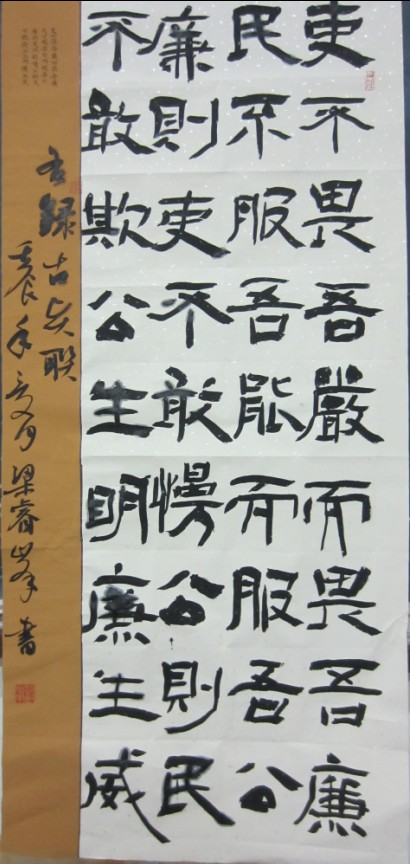 吏不畏吾嚴而畏吾廉
民不服吾能而服吾公
廉則吏不敢慢公則民
不敢欺公生明廉生威
錄古联
壬辰年月梁睿峰書